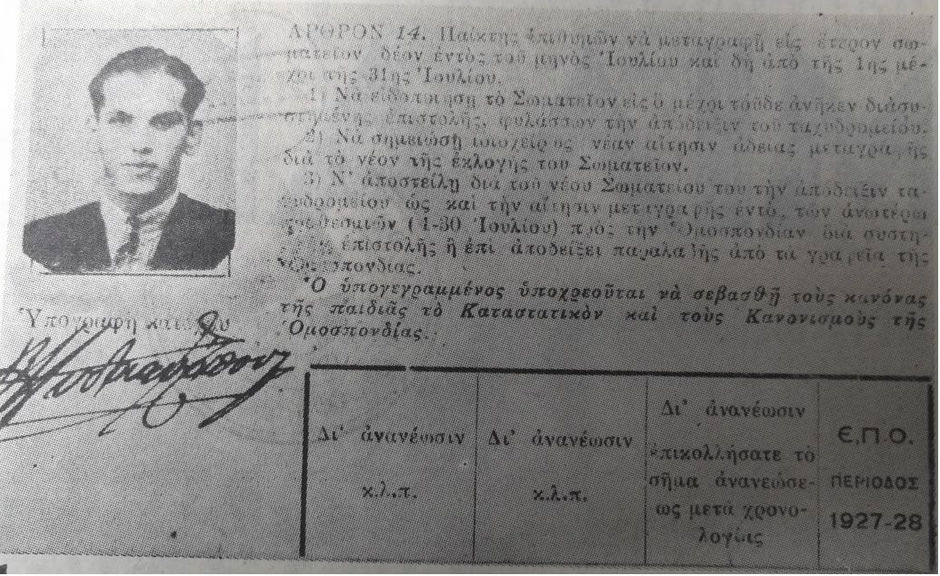 ΑΡΘΡΟΝ 14. Παίκτης ἐπιθυμῶν νὰ μεταγραφῇ εἰς ἕτερον σω-
ματεῖον, δέον ἐντὸς τοῦ μηνὸς Ἰουλίου καὶ δὴ ἀπὸ τῆς 1ης μέ-
χρι τῆς 31ης Ἰουλίου.
1) Νὰ εἰδοποιήσῃ τὸ Σωματεῖον εἰς ὃ μέχρι τοῦδε ἀνῆκεν διὰ συ-
στημένης ἐπιστολῆς, φυλάσσων τὴν ἀπόδειξιν τοῦ ταχυδρομείου.
2) Νὰ σημειώσῃ ἰδιοχείρως νέαν αἴτησιν ἀδείας μεταγραφῆς
διὰ τὸ νέον τῆς ἐκλογῆς του Σωματεῖον.
3) Ν' ἀποστείλῃ διὰ τοῦ νέου Σωματείου του τὴν ἀπόδειξιν τα-
χυδρομείου ὡς καὶ τὴν αἴτησιν μεταγραφῆς ἐντὸς τῶν ἀνωτέρω
προθεσμιῶν (1-30 Ἰουλίου) πρὸς τὴν Ὁμοσπονδίαν διὰ συστη-
ἐπιστολῆς ἢ ἐπὶ ἀποδείξει παραλαβῆς ἀπὸ τὰ γραφεῖα τῆς
Ὁμοσπονδίας.
Ὁ ὑπογεγραμμένος ὑποχρεοῦται νὰ σεβασθῇ τοὺς κανόνας
τῆς παιδιᾶς τὸ Καταστατικὸν καὶ τοὺς Κανονισμοὺς τῆς
Ὁμοσπονδίας.
Ὑπογραφὴ κατόχου
Δι' ἀνανέωσιν
κ.λ.π.
Δι' ἀνανέωσιν
κ.λ.π.
Δι' ἀνανέωσιν
ἐπικολλήσατε τὸ
σῆμα ἀνανεώσε-
ως μετὰ χρονο-
λογίας
Ε.Π.Ο.
ΠΕΡΙΟΔΟΣ
1927-28